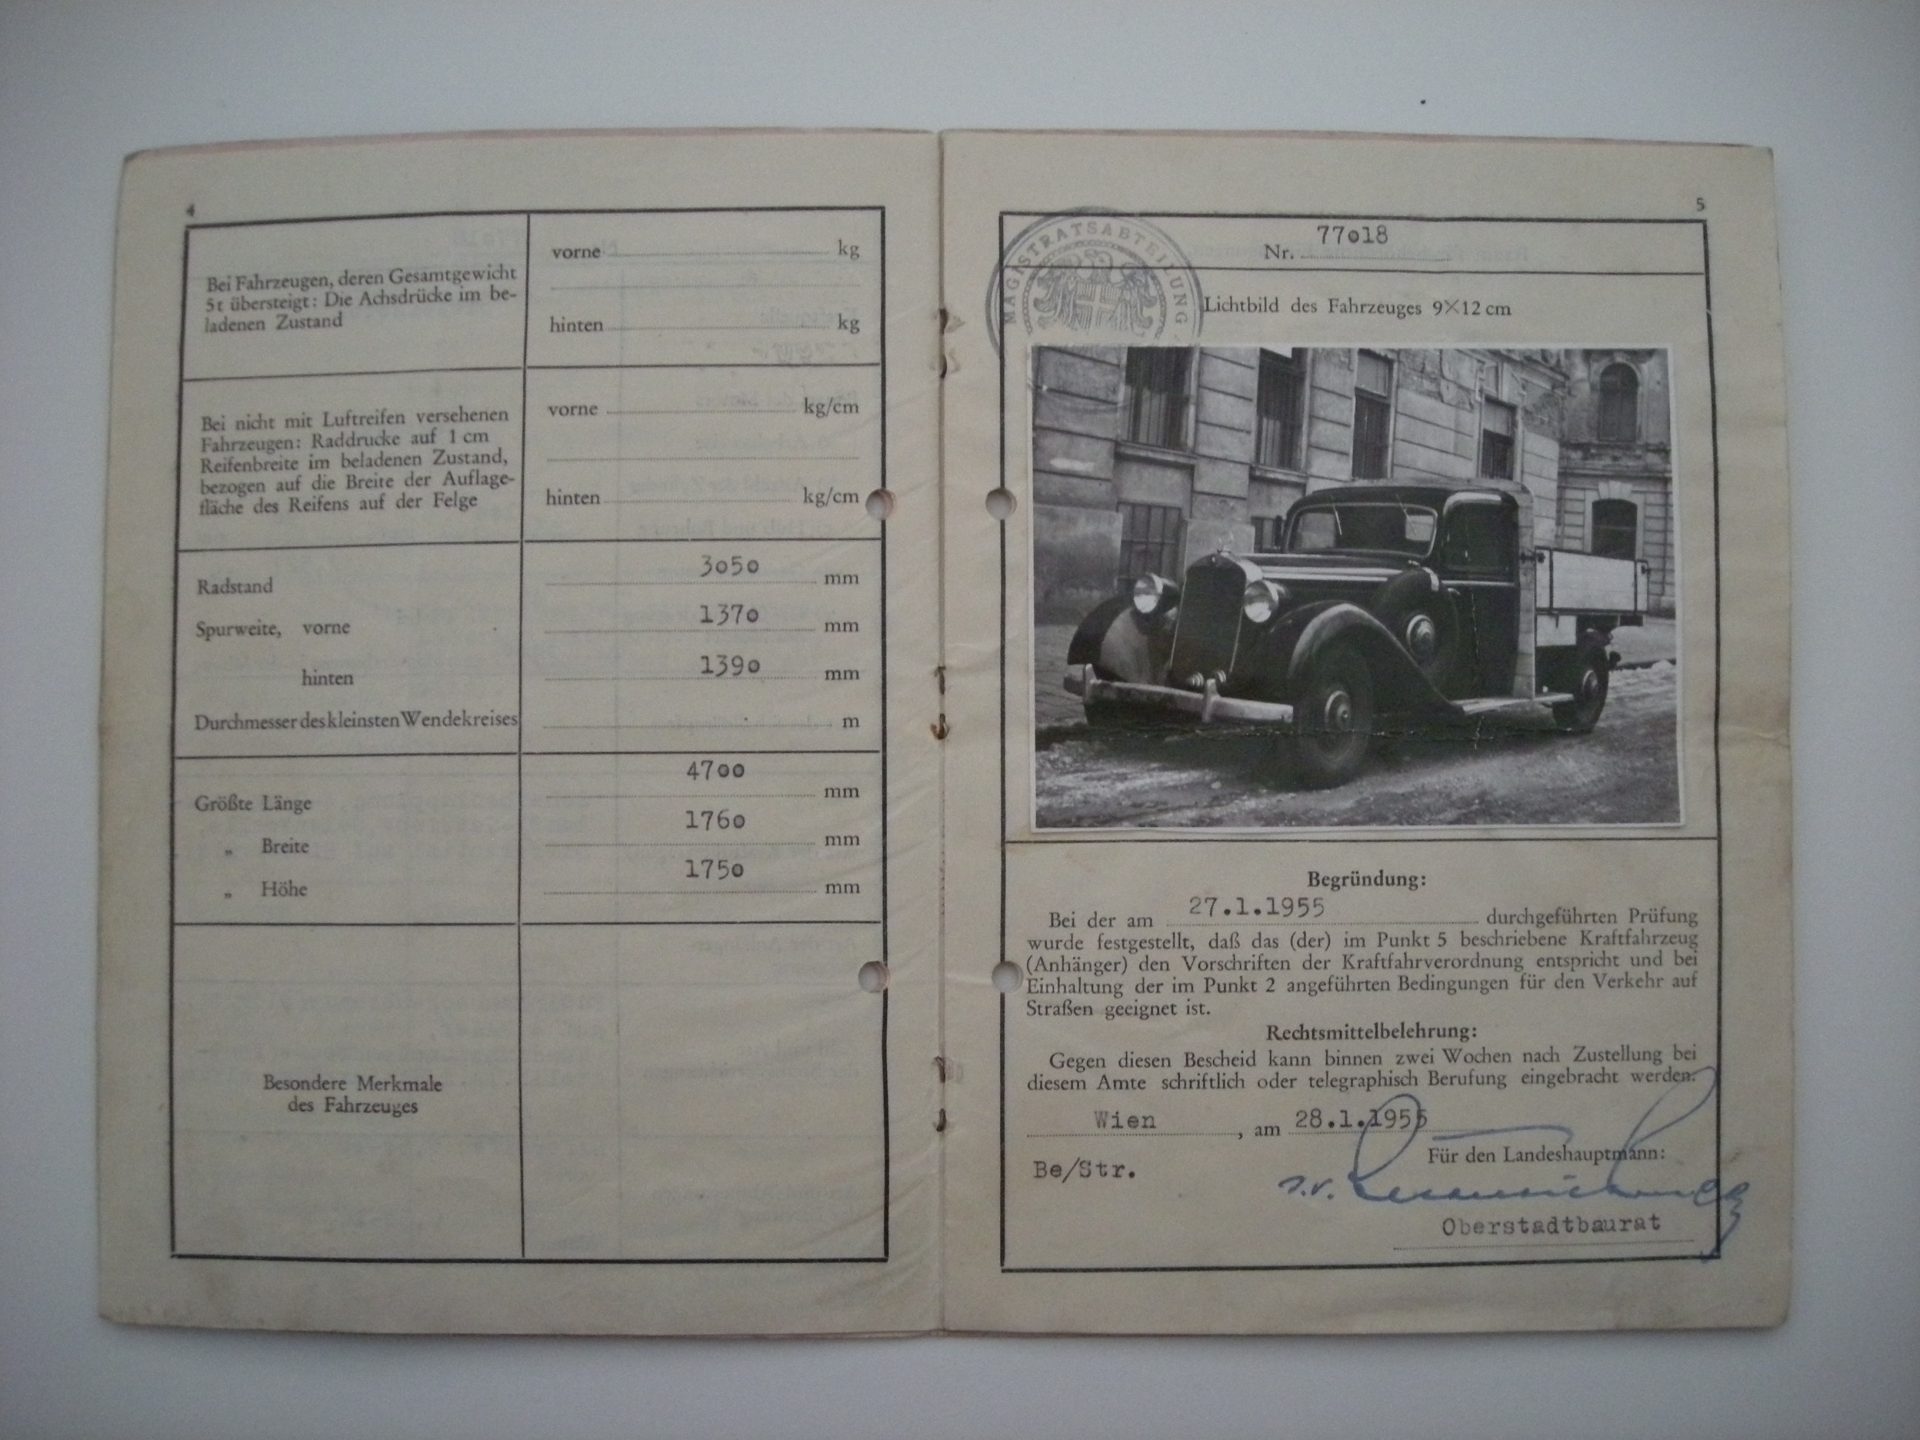 4
Bei Fahrzeugen, deren Gesamtgewicht
5 t übersteigt: Die Achsdrücke im be-
ladenen Zustand
vorne kg
hinten kg
Bei nicht mit Luftreifen versehenen
Fahrzeugen: Raddrucke auf 1 cm
Reifenbreite im beladenen Zustand,
bezogen auf die Breite der Auflage-
fläche des Reifens auf der Felge
vorne kg/cm
hinten kg/cm
Radstand 3050 mm
Spurweite, vorne 1370 mm
hinten 1390 mm
Durchmesser des kleinsten Wendekreises m
Größte Länge 4700 mm
„ Breite 1760 mm
„ Höhe 1750 mm
Besondere Merkmale
des Fahrzeuges
5
MAGISTRATSABTEILUNG
Nr. 77018
Lichtbild des Fahrzeuges 9×12 cm
Begründung:
Bei der am 27.1.1955 durchgeführten Prüfung
wurde festgestellt, daß das (der) im Punkt 5 beschriebene Kraftfahrzeug
(Anhänger) den Vorschriften der Kraftfahrverordnung entspricht und bei
Einhaltung der im Punkt 2 angeführten Bedingungen für den Verkehr auf
Straßen geeignet ist.
Rechtsmittelbelehrung:
Gegen diesen Bescheid kann binnen zwei Wochen nach Zustellung bei
diesem Amte schriftlich oder telegraphisch Berufung eingebracht werden.
Wien, am 28.1.1955
Für den Landeshauptmann:
Be/Str.
Oberstadtbaurat